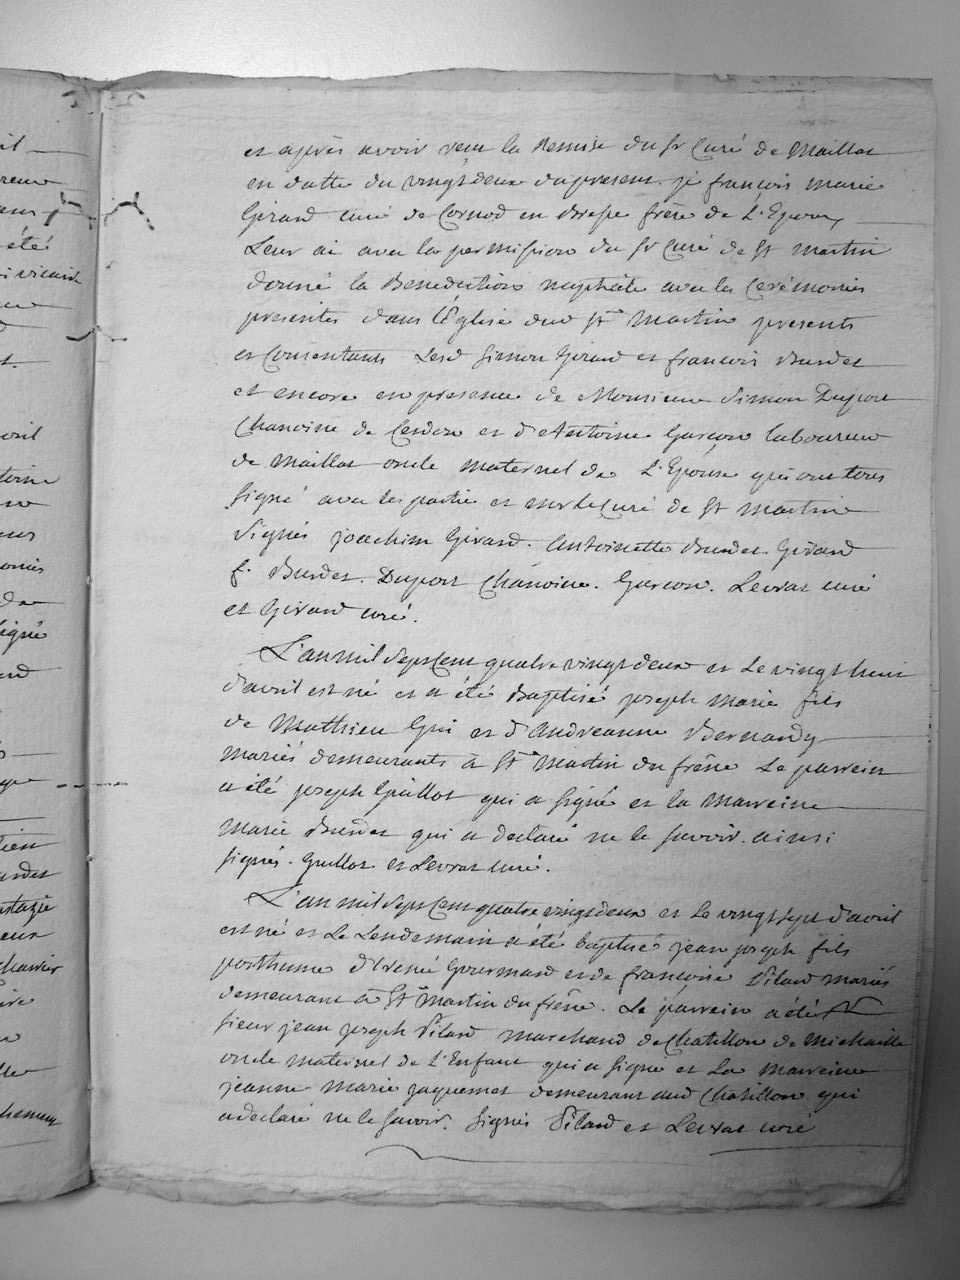 et après avoir veu la Remise du Sr Curé de Maillat
en datte du vingt deux du present. je françois marie
Girard curé de Cornod en Bresse frère de L'Epoux
Leur ai avec la permission du Sr Curé de St martin
donné la Benediction nuptiale avec les Cerémonies
presrites dans l'Église dud St Martin presents
et Consentants Lesd Simon Girard et françois Burdet
et encore en presence de Monsieur Simon Duport
Chanoine de Cerdon et d'Antoine Garçon laboureur
de Maillat oncle maternel de L'Epouse qui ont tous
signé avec les partie et mr le Curé de St Martin
Signés joachim Girard. Antoinette Burdet. Girard
f. Burdet. Duport Chanoine. Garçon. Levrat curé
et Girard curé.
L'an mil sept Cent quatre vingt deux et Le vingt huit
d'avril est né et a été Baptisé joseph Marie fils
de Mathieu Gui et d'Andreanne Bernardy
mariés demeurants à St Martin du frêne Le parrein
a été joseph Guillot qui a signé et la Marreine
Marie Burdet qui a declaré ne le savoir. ainsi
signés. Guillot et Levrat curé.
L'an mil sept Cent quatre vingt deux et Le vingt sept d'avril
est né et Le Lendemain a été baptisé jean joseph fils
posthume d'Irené Gourmand et de françoise Vilard mariés
demeurant à St Martin du frêne. Le parrein a été
sieur jean joseph Vilard marchand de Chatillon de Michaille
oncle maternel de L'Enfant qui a signé et La Marreine
jeanne Marie jaquemet demeurant aud Chatillon qui
a declaré ne le savoir. Signés Vilard et Levrat curé